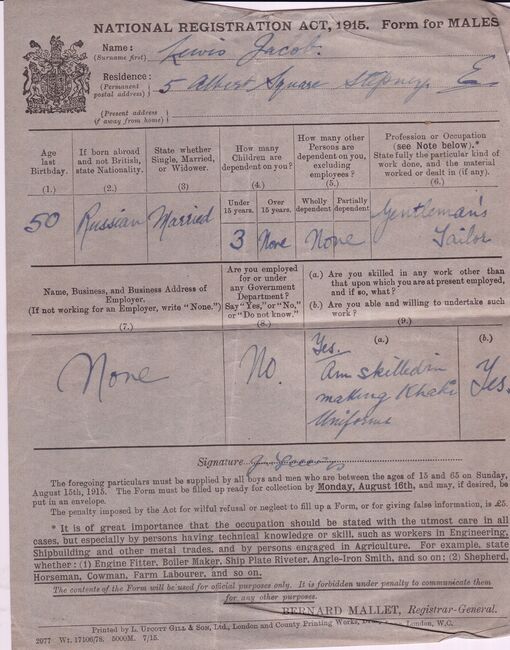 NATIONAL REGISTRATION ACT, 1915. Form for MALES
Name: Lewis Jacob.
(Surname first)
Residence: 5 Albert Square Stepney E
(Permanent
postal address)
(Present address
if away from home)
Age
last
Birthday.
(1.)
If born abroad
and not British,
state Nationality.
(2.)
State whether
Single, Married,
or Widower.
(3)
How many
Children are
dependent on you?
(4.)
How many other
Persons are
dependent on you,
excluding
employees?
(5.)
Profession or Occupation
(see Note below).*
State fully the particular kind of
work done, and the material
worked or dealt in (if any).
(6.)
Under
15 years.
Over
15 years.
Wholly
dependent
Partially
dependent
50
Russian
Married
3
None
None
Gentleman's
Tailor
Name, Business, and Business Address of
Employer.
(If not working for an Employer, write "None.")
(7.)
Are you employed
for or under
any Government
Department?
Say "Yes," or "No,"
or "Do not know."
(8.)
(a.) Are you skilled in any work other than
that upon which you are at present employed,
and if so, what?
(b.) Are you able and willing to undertake such
work?
(9.)
None
No.
(a.)
Yes.
Am skilled in
making Khaki
Uniforms
(b.)
Yes.
Signature J Lewis
The foregoing particulars must be supplied by all boys and men who are between the ages of 15 and 65 on Sunday,
August 15th, 1915. The Form must be filled up ready for collection by Monday, August 16th, and may, if desired, be
put in an envelope.
The penalty imposed by the Act for wilful refusal or neglect to fill up a Form, or for giving false information, is £5.
* It is of great importance that the occupation should be stated with the utmost care in all
cases, but especially by persons having technical knowledge or skill, such as workers in Engineering,
Shipbuilding and other metal trades, and by persons engaged in Agriculture. For example, state
whether: (1) Engine Fitter, Boiler Maker, Ship Plate Riveter, Angle-Iron Smith, and so on; (2) Shepherd,
Horseman, Cowman, Farm Labourer, and so on.
The contents of the Form will be used for official purposes only. It is forbidden under penalty to communicate them
for any other purposes.
BERNARD MALLET, Registrar-General.
Printed by L. Upcott Gill & Son, Ltd., London and County Printing Works, London, W.C.
2077 Wt. 17106/78. 5000M. 7/15.